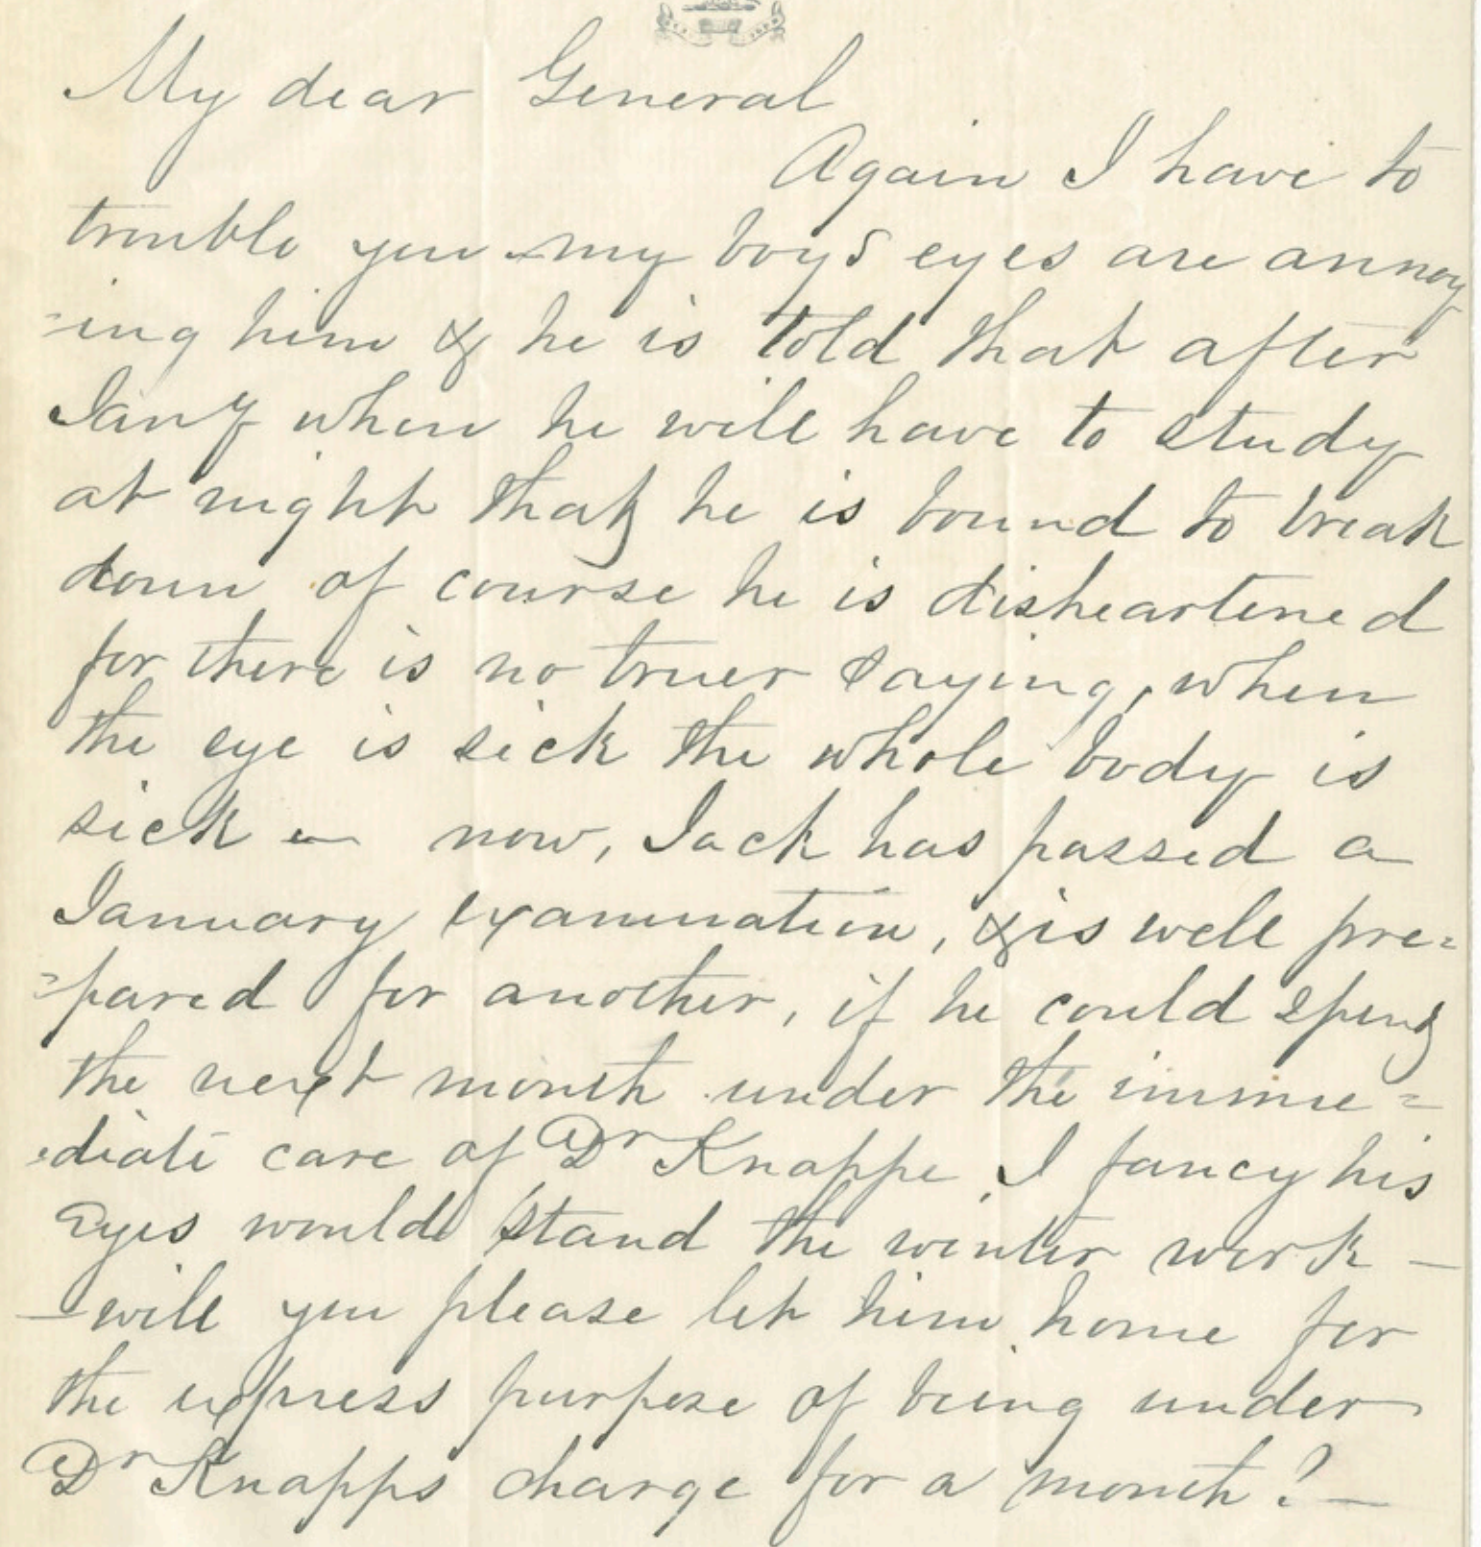 My dear General
Again I have to
trouble you my boys eyes are annoy
-ing him & he is told that after
Jany when he will have to study
at night that he is bound to break
down of course he is disheartened
for there is no truer saying, when
the eye is sick the whole body is
sick — now, Jack has passed a
January examination, & is well pre=
=pared for another, if he could spend
the next month under the imme=
=diate care of Dr Knappe, I fancy his
Eyes would stand the winter work —
— will you please let him home for
the express purpose of being under
Dr Knapps charge for a month? —